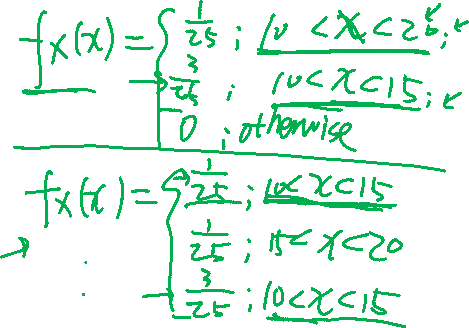 fX(x) = { 1/25 ; 10 < x < 20 ;
3/25 ; 10 < x < 15 ;
0 ; otherwise
fX(x) = { 1/25 ; 10 < x < 15
1/25 ; 15 < x < 20
3/25 ; 10 < x < 15